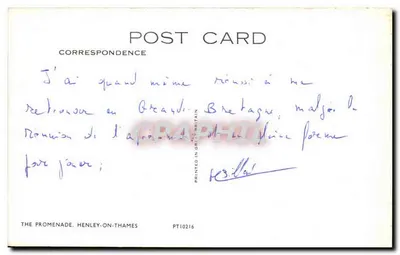 POST CARD
CORRESPONDENCE
J'ai quand même réussi à me
retrouver en Grande Bretagne, malgré la
réunion de l'
pour jouer;
PRINTED IN GREAT BRITAIN
THE PROMENADE, HENLEY-ON-THAMES PT10216